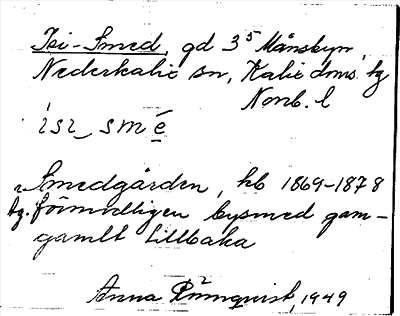 Isi-Smed, gd 3⁵ Månsbyn,
Nederkalix sn, Kalix doms. tg
Norrb. l
ìsı̣ smé̱
Smedgården, hb 1869-1878
tg. förmodligen bysmed gam-
gamlt tillbaka
Anna Rönnqvist, 1949